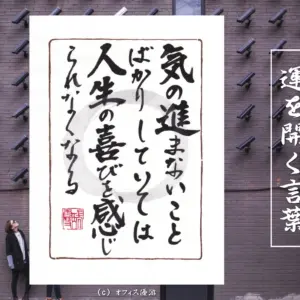 運を開く言葉
気の進まないこと
ばかりしていては
人生の喜びを感じ
られなくなる
(c) オフィス優游